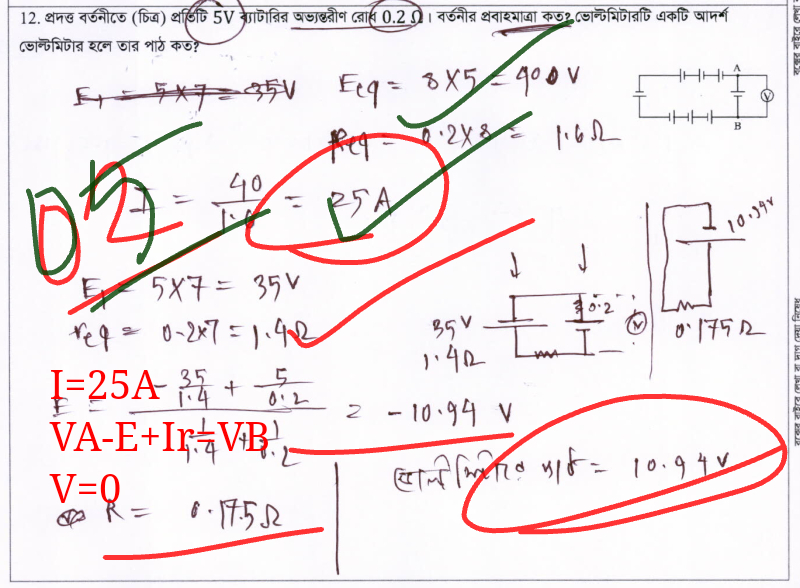 12. প্রদত্ত বর্তনীতে (চিত্র) প্রতিটি 5V ব্যাটারির অভ্যন্তরীণ রোধ 0.2 Ω । বর্তনীর প্রবাহমাত্রা কত? ভোল্টমিটারটি একটি আদর্শ
ভোল্টমিটার হলে তার পাঠ কত?
E₁ = 5×7 = 35V
Eeq = 8×5 = 40 V
Req = 0.2×8 = 1.6Ω
A
V
B
05
I = 40/1.6 = 25A
E₁ = 5×7 = 35V
req = 0.2×7 = 1.4Ω
35V
1.4Ω
0.2
V
10.94V
0.175Ω
I=25A
VA-E+Ir=VB
V=0
E = (-35/1.4 + 5/0.2)/(1/1.4 + 1/0.2) = -10.94 V
R = 0.175Ω
ভোল্টমিটার পাঠ = 10.94V